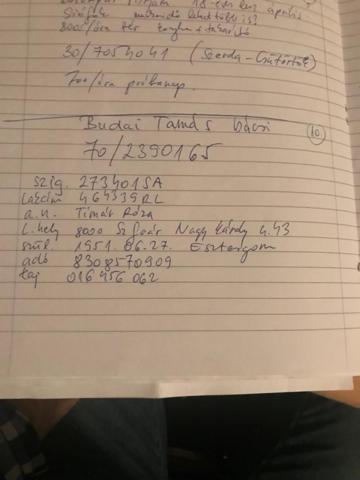 18-án
800Ft/óra
30/7054041 (Szerda-Csütörtök)
700/óra próbanap.
Budai Tamás bácsi
10
70/2390165
szig. 273401SA
lakcím 464339RL
a.n. Timár Róza
l.hely 8000 Szfvár Nagy Károly u.43
szül. 1951.06.27. Esztergom
adó 8308570909
taj 016456062